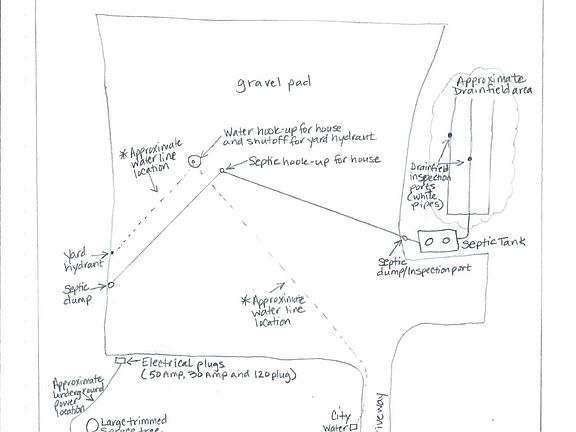 gravel pad
Approximate
Drainfield area
Water hook-up for house
and shutoff for yard hydrant
* Approximate
water line
location
Septic hook-up for house
Drainfield
inspection
ports
(white
pipes)
Yard
hydrant
Septic Tank
Septic
dump/Inspection port
Septic
dump
* Approximate
water line
location
Electrical plugs
(50 Amp, 30 Amp and 120 plug)
Approximate
underground
power
location
Large trimmed
tree
City
Water